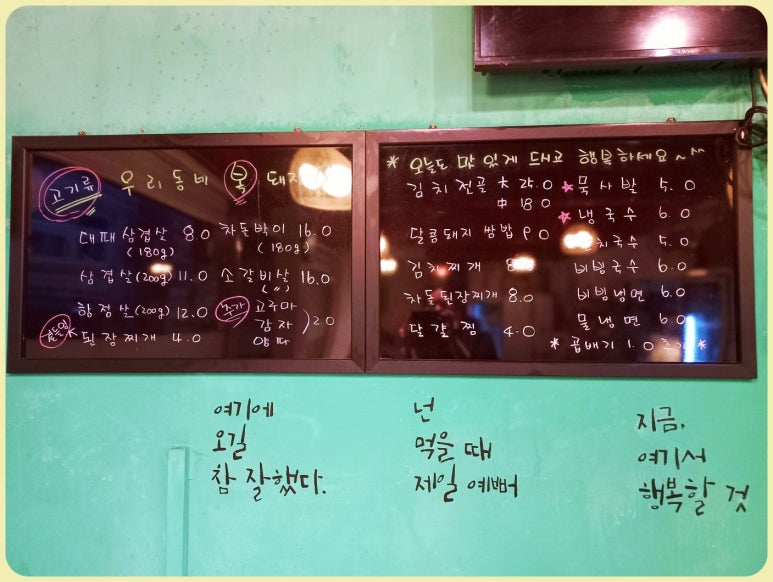 고기류 우리동네 복 돼지
대패삼겹살 8.0
(180g)
차돌박이 16.0
(180g)
삼겹살(200g) 11.0
소갈비살 16.0
(〃)
항정살(200g) 12.0
추가 고구마
감자 2.0
양파
된장찌개 4.0
* 오늘도 맛있게 드시고 행복하세요~^^
김치전골 大 25.0
中 18.0
달콤돼지 쌈밥
김치찌개
차돌된장찌개 8.0
달걀찜 4.0
묵사발 5.0
냉국수 6.0
치국수 5.0
비빔국수 6.0
비빔냉면 6.0
물냉면 6.0
* 곱배기 1.0 추가 *
여기에
오길
참 잘했다.
넌
먹을 때
제일 예뻐
지금,
여기서
행복할 것